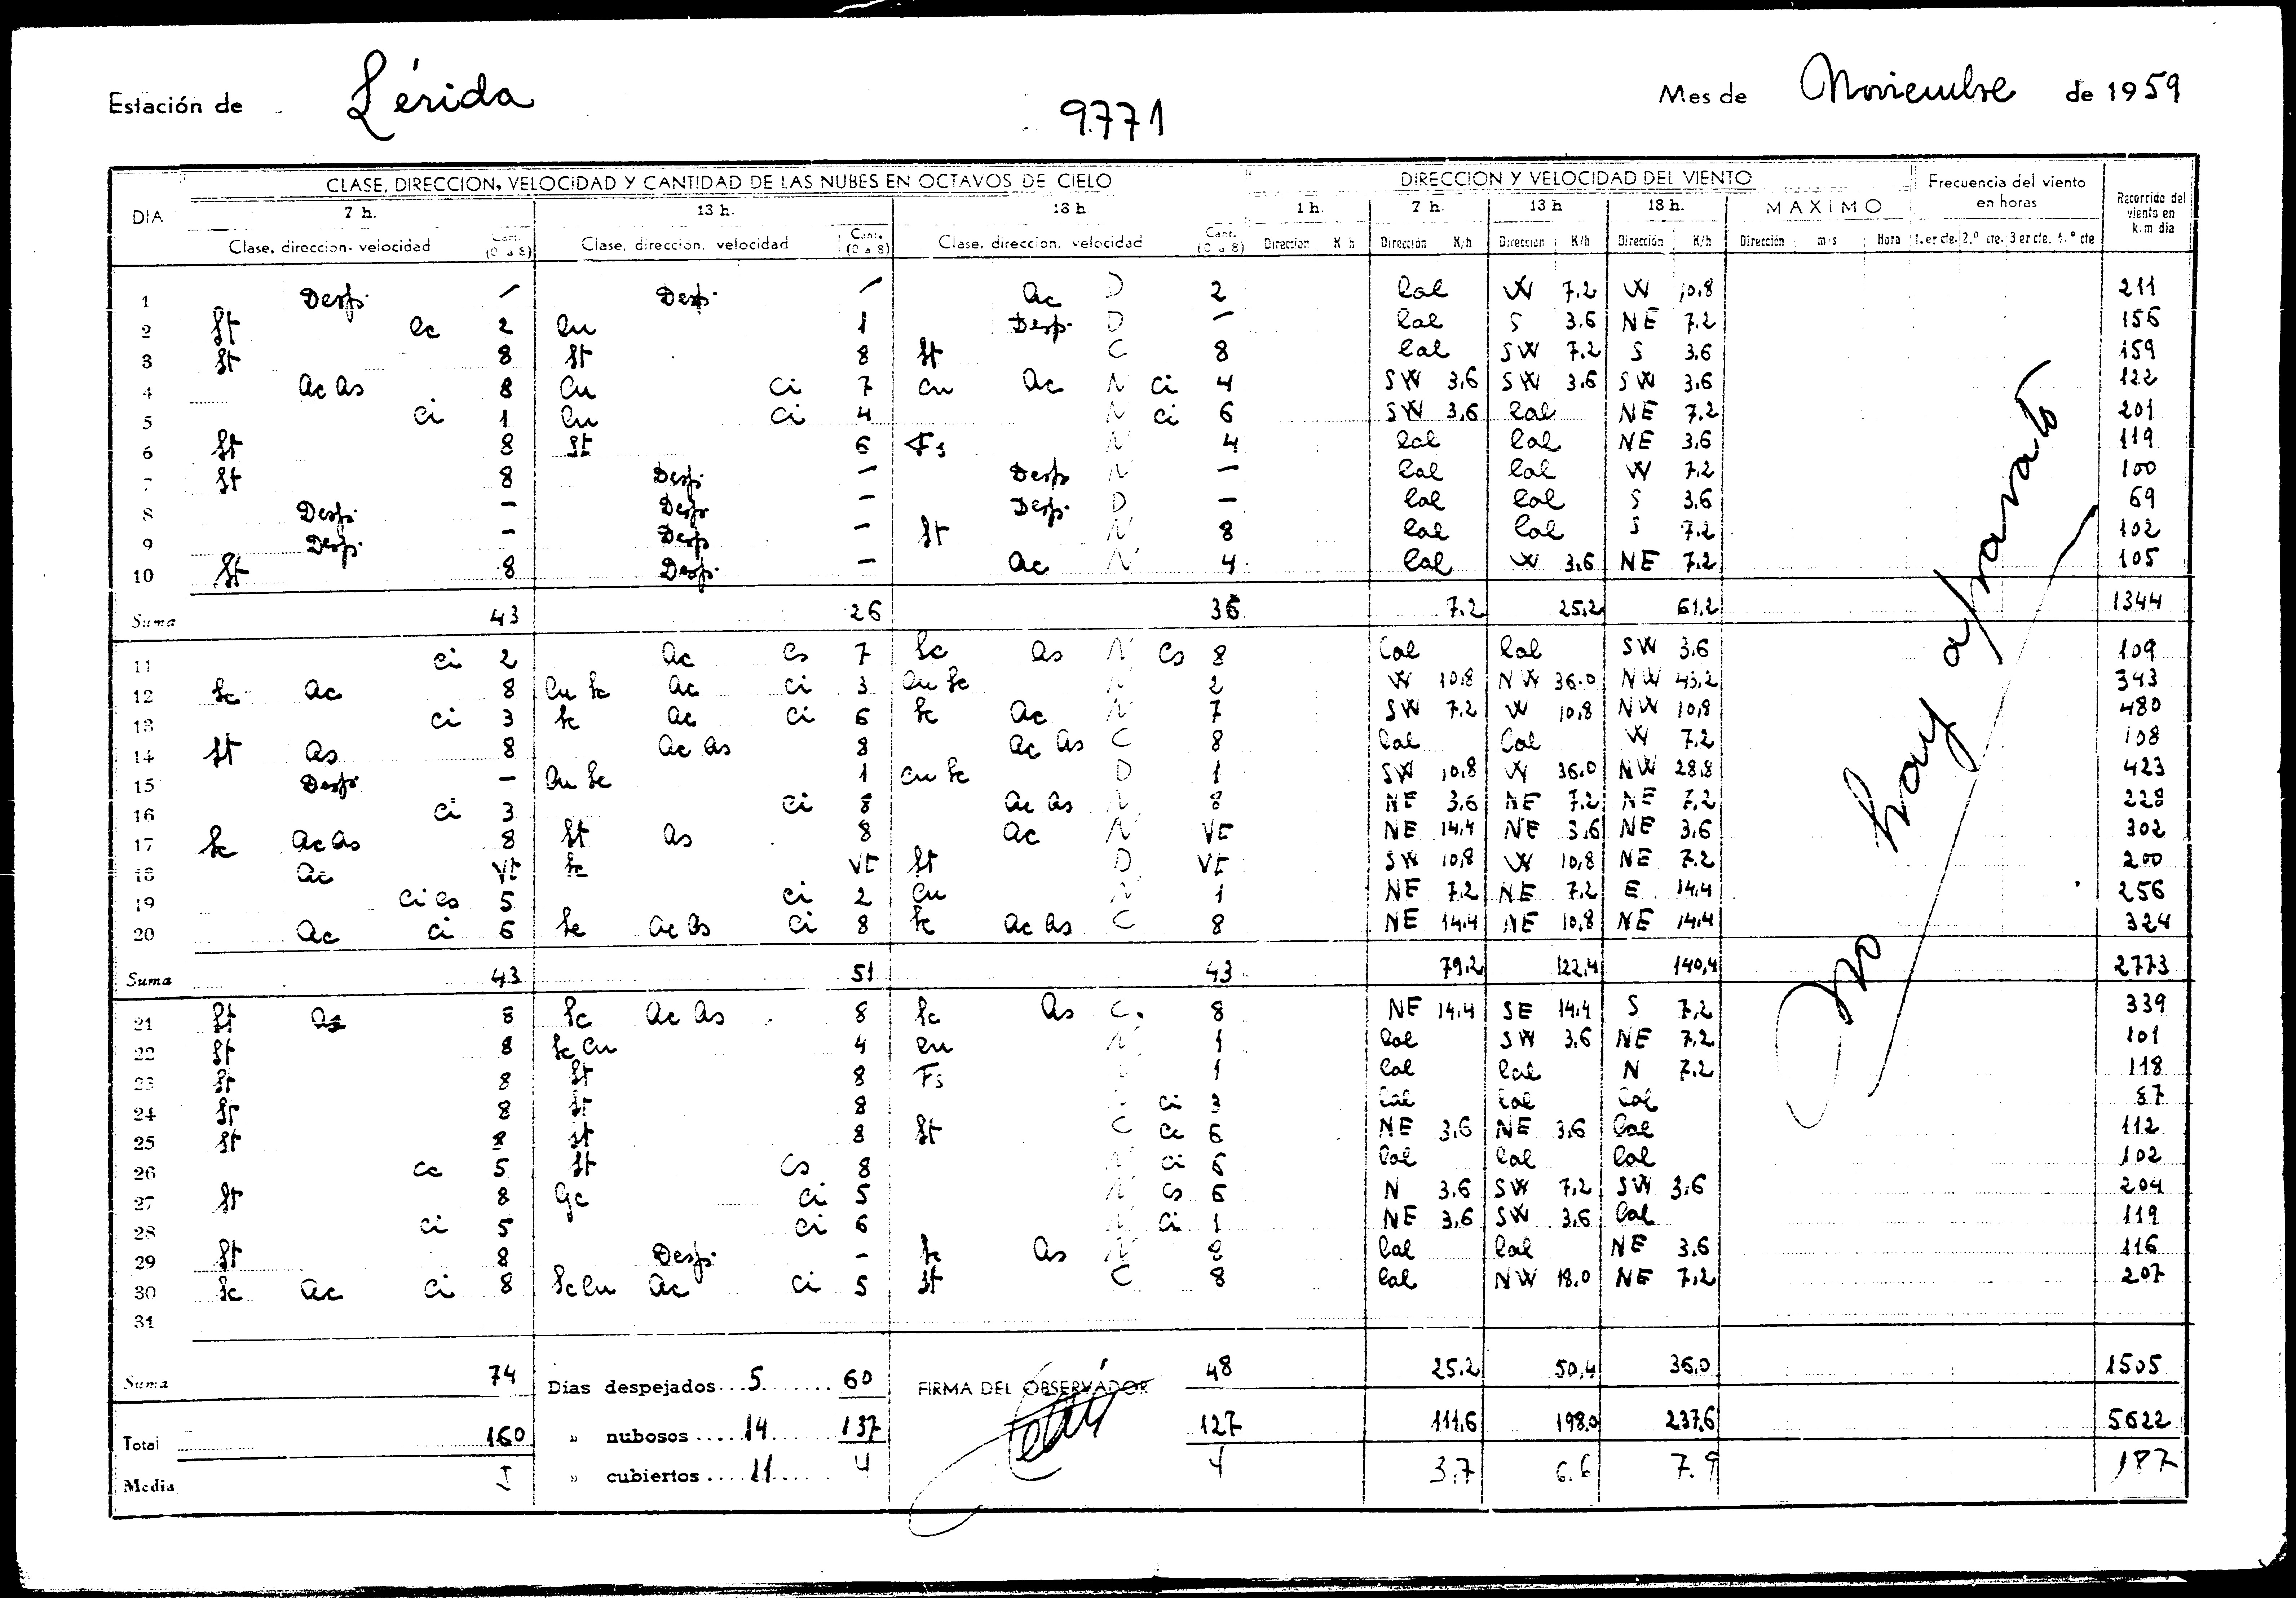 Estación de Lérida 9771 Mes de Noviembre de 1959
CLASE, DIRECCION, VELOCIDAD Y CANTIDAD DE LAS NUBES EN OCTAVOS DE CIELO DIRECCION Y VELOCIDAD DEL VIENTO Frecuencia del viento en horas Recorrido del viento en k.m dia
DIA 7 h. 13 h. 18 h 1 h. 7 h. 13 h 18 h. MAXIMO
Clase, direccion, velocidad Cant. (0 a 8) Clase, dirección, velocidad Cant. (0 a 8) Clase, direccion, velocidad Cant. (0 a 8) Direccion K h Dirección K/h Dirección K/h Dirección K/h Dirección m/s Hora 1.er cte. 2.º cte. 3.er cte. 4.º cte
1 Desp. - Desp. - Ac D 2 Cal W 7.2 W 10.8 211
2 St Cc 2 Cu 1 Desp. D - Cal S 3.6 NE 7.2 156
3 St 8 St 8 St C 8 Cal SW 7.2 S 3.6 159
4 Ac As 8 Cu Ci 7 Cu Ac N Ci 4 SW 3.6 SW 3.6 SW 3.6 122
5 Ci 1 Cu Ci 4 N Ci 6 SW 3.6 Cal NE 7.2 201
6 St 8 St 6 Fs N 4 Cal Cal NE 3.6 119
7 St 8 Desp. - Desp N - Cal Cal W 7.2 100
8 Desp. - Desp. - Desp. D - Cal Cal S 3.6 69
9 Desp. - Desp - St N 8 Cal Cal S 7.2 102
10 St 8 Desp. - Ac N 4 Cal W 3.6 NE 7.2 105
Suma 43 26 36 7.2 25.2 61.2 1344
11 Ci 2 Ac Cs 7 Sc As N Cs 8 Cal Cal SW 3.6 109
12 Sc Ac 8 Cu Sc Ac Ci 3 Cu Sc N 2 W 10.8 NW 36.0 NW 43.2 343
13 Ci 3 Sc Ac Ci 6 Sc Ac N 7 SW 7.2 W 10.8 NW 10.8 480
14 St As 8 Ac As 8 Ac As C 8 Cal Cal W 7.2 108
15 Desp. - Cu Sc 1 Cu Sc D 1 SW 10.8 W 36.0 NW 28.8 423
16 Ci 3 Ci 8 Ac As N 8 NE 3.6 NE 7.2 NE 7.2 228
17 Sc Ac As 8 St As 8 Ac N VE NE 14.4 NE 3.6 NE 3.6 302
18 Ac VE Sc VE St D VE SW 10.8 W 10.8 NE 7.2 200
19 Ci Cs 5 Ci 2 Cu N 1 NE 7.2 NE 7.2 E 14.4 256
20 Ac Ci 6 Sc Ac As Ci 8 Sc Ac As C 8 NE 14.4 NE 10.8 NE 14.4 324
Suma 43 51 43 79.2 122.4 140.4 2773
21 St As 8 Sc Ac As 8 Sc As C. 8 NE 14.4 SE 14.4 S 7.2 339
22 St 8 Sc Cu 4 Cu N 1 Cal SW 3.6 NE 7.2 101
23 St 8 St 8 Fs 1 Cal Cal N 7.2 118
24 St 8 St 8 Ci 3 Cal Cal Cal 87
25 St 8 St 8 St C Cc 6 NE 3.6 NE 3.6 Cal 112
26 Cc 5 St Cs 8 N Ci 6 Cal Cal Cal 102
27 St 8 Ci 5 N Cs 6 N 3.6 SW 7.2 SW 3.6 204
28 Ci 5 Ci 6 N Ci 1 NE 3.6 SW 3.6 Cal 119
29 St 8 Desp. - Sc As N 8 Cal Cal NE 3.6 116
30 Sc Ac Ci 8 Sc Cu Ac Ci 5 St C 8 Cal NW 18.0 NE 7.2 207
31
no hay aparato
Suma 74 Días despejados 5 60 FIRMA DEL OBSERVADOR 48 25.2 50.4 36.0 1505
Total 160 » nubosos 14 137 127 111.6 198.0 237.6 5622
Media 5 » cubiertos 11 4 4 3.7 6.6 7.9 187